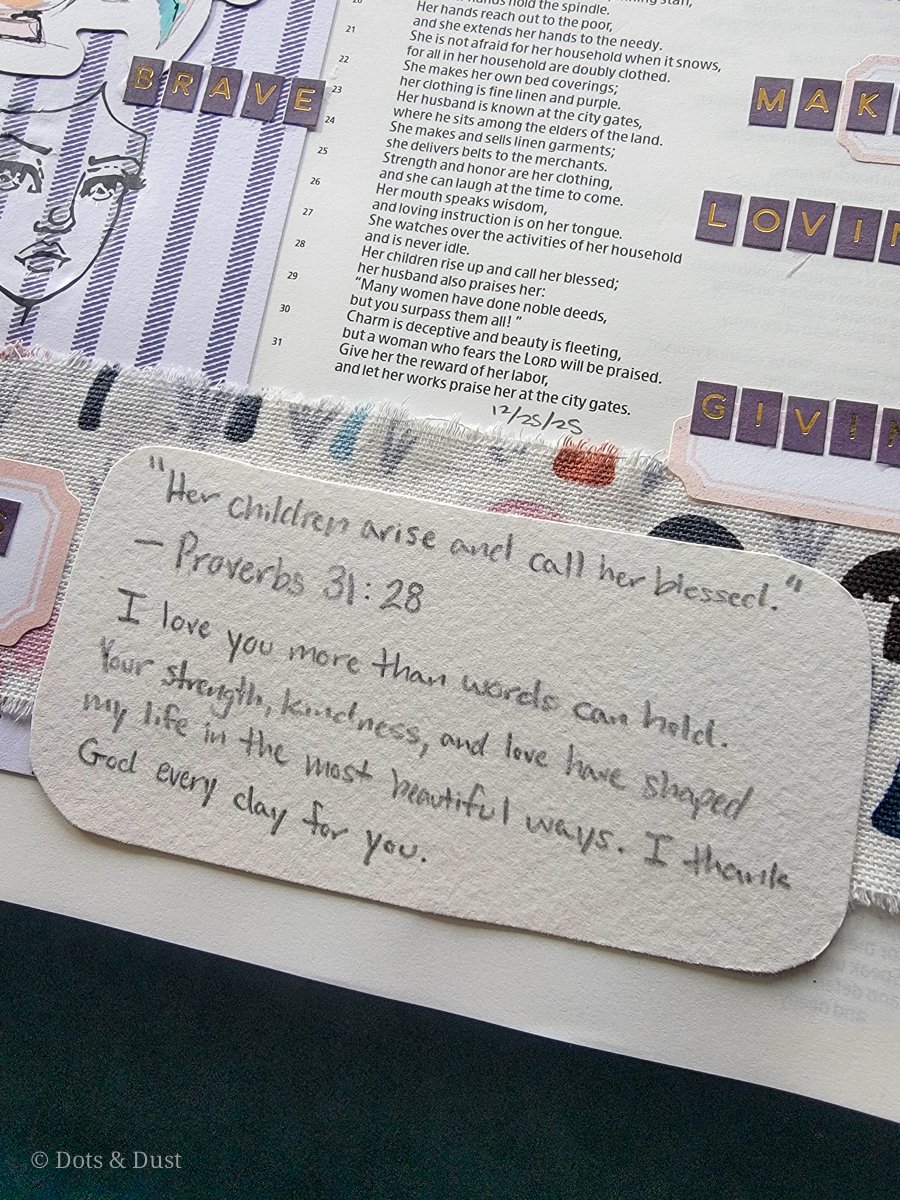 hold the spindle.
Her hands reach out to the poor,
21 and she extends her hands to the needy.
She is not afraid for her household when it snows,
22 for all in her household are doubly clothed.
She makes her own bed coverings;
23 her clothing is fine linen and purple.
Her husband is known at the city gates,
24 where he sits among the elders of the land.
She makes and sells linen garments;
25 she delivers belts to the merchants.
Strength and honor are her clothing,
26 and she can laugh at the time to come.
Her mouth speaks wisdom,
27 and loving instruction is on her tongue.
She watches over the activities of her household
28 and is never idle.
Her children rise up and call her blessed;
29 her husband also praises her:
"Many women have done noble deeds,
30 but you surpass them all! "
Charm is deceptive and beauty is fleeting,
31 but a woman who fears the LORD will be praised.
Give her the reward of her labor,
and let her works praise her at the city gates.
12/25/25
BRAVE
MAK
LOVIN
GIVIN
S
"Her children arise and call her blessed."
— Proverbs 31:28
I love you more than words can hold.
Your strength, kindness, and love have shaped
my life in the most beautiful ways. I thank
God every day for you.
© Dots & Dust